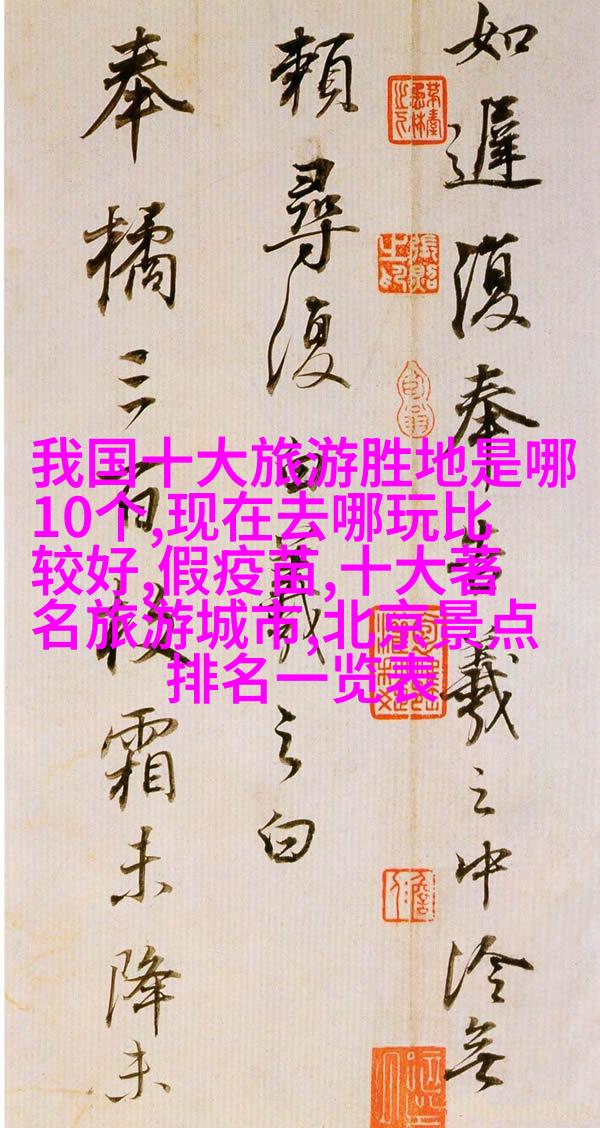 我国十大旅游胜地是哪
10个,现在去哪玩比
较好,假疫苗,十大著
名旅游城市,北京景点
排名一览表
如遲復奉告羲之中冷無
賴尋復白羲之白
奉橘三百枚霜未降未